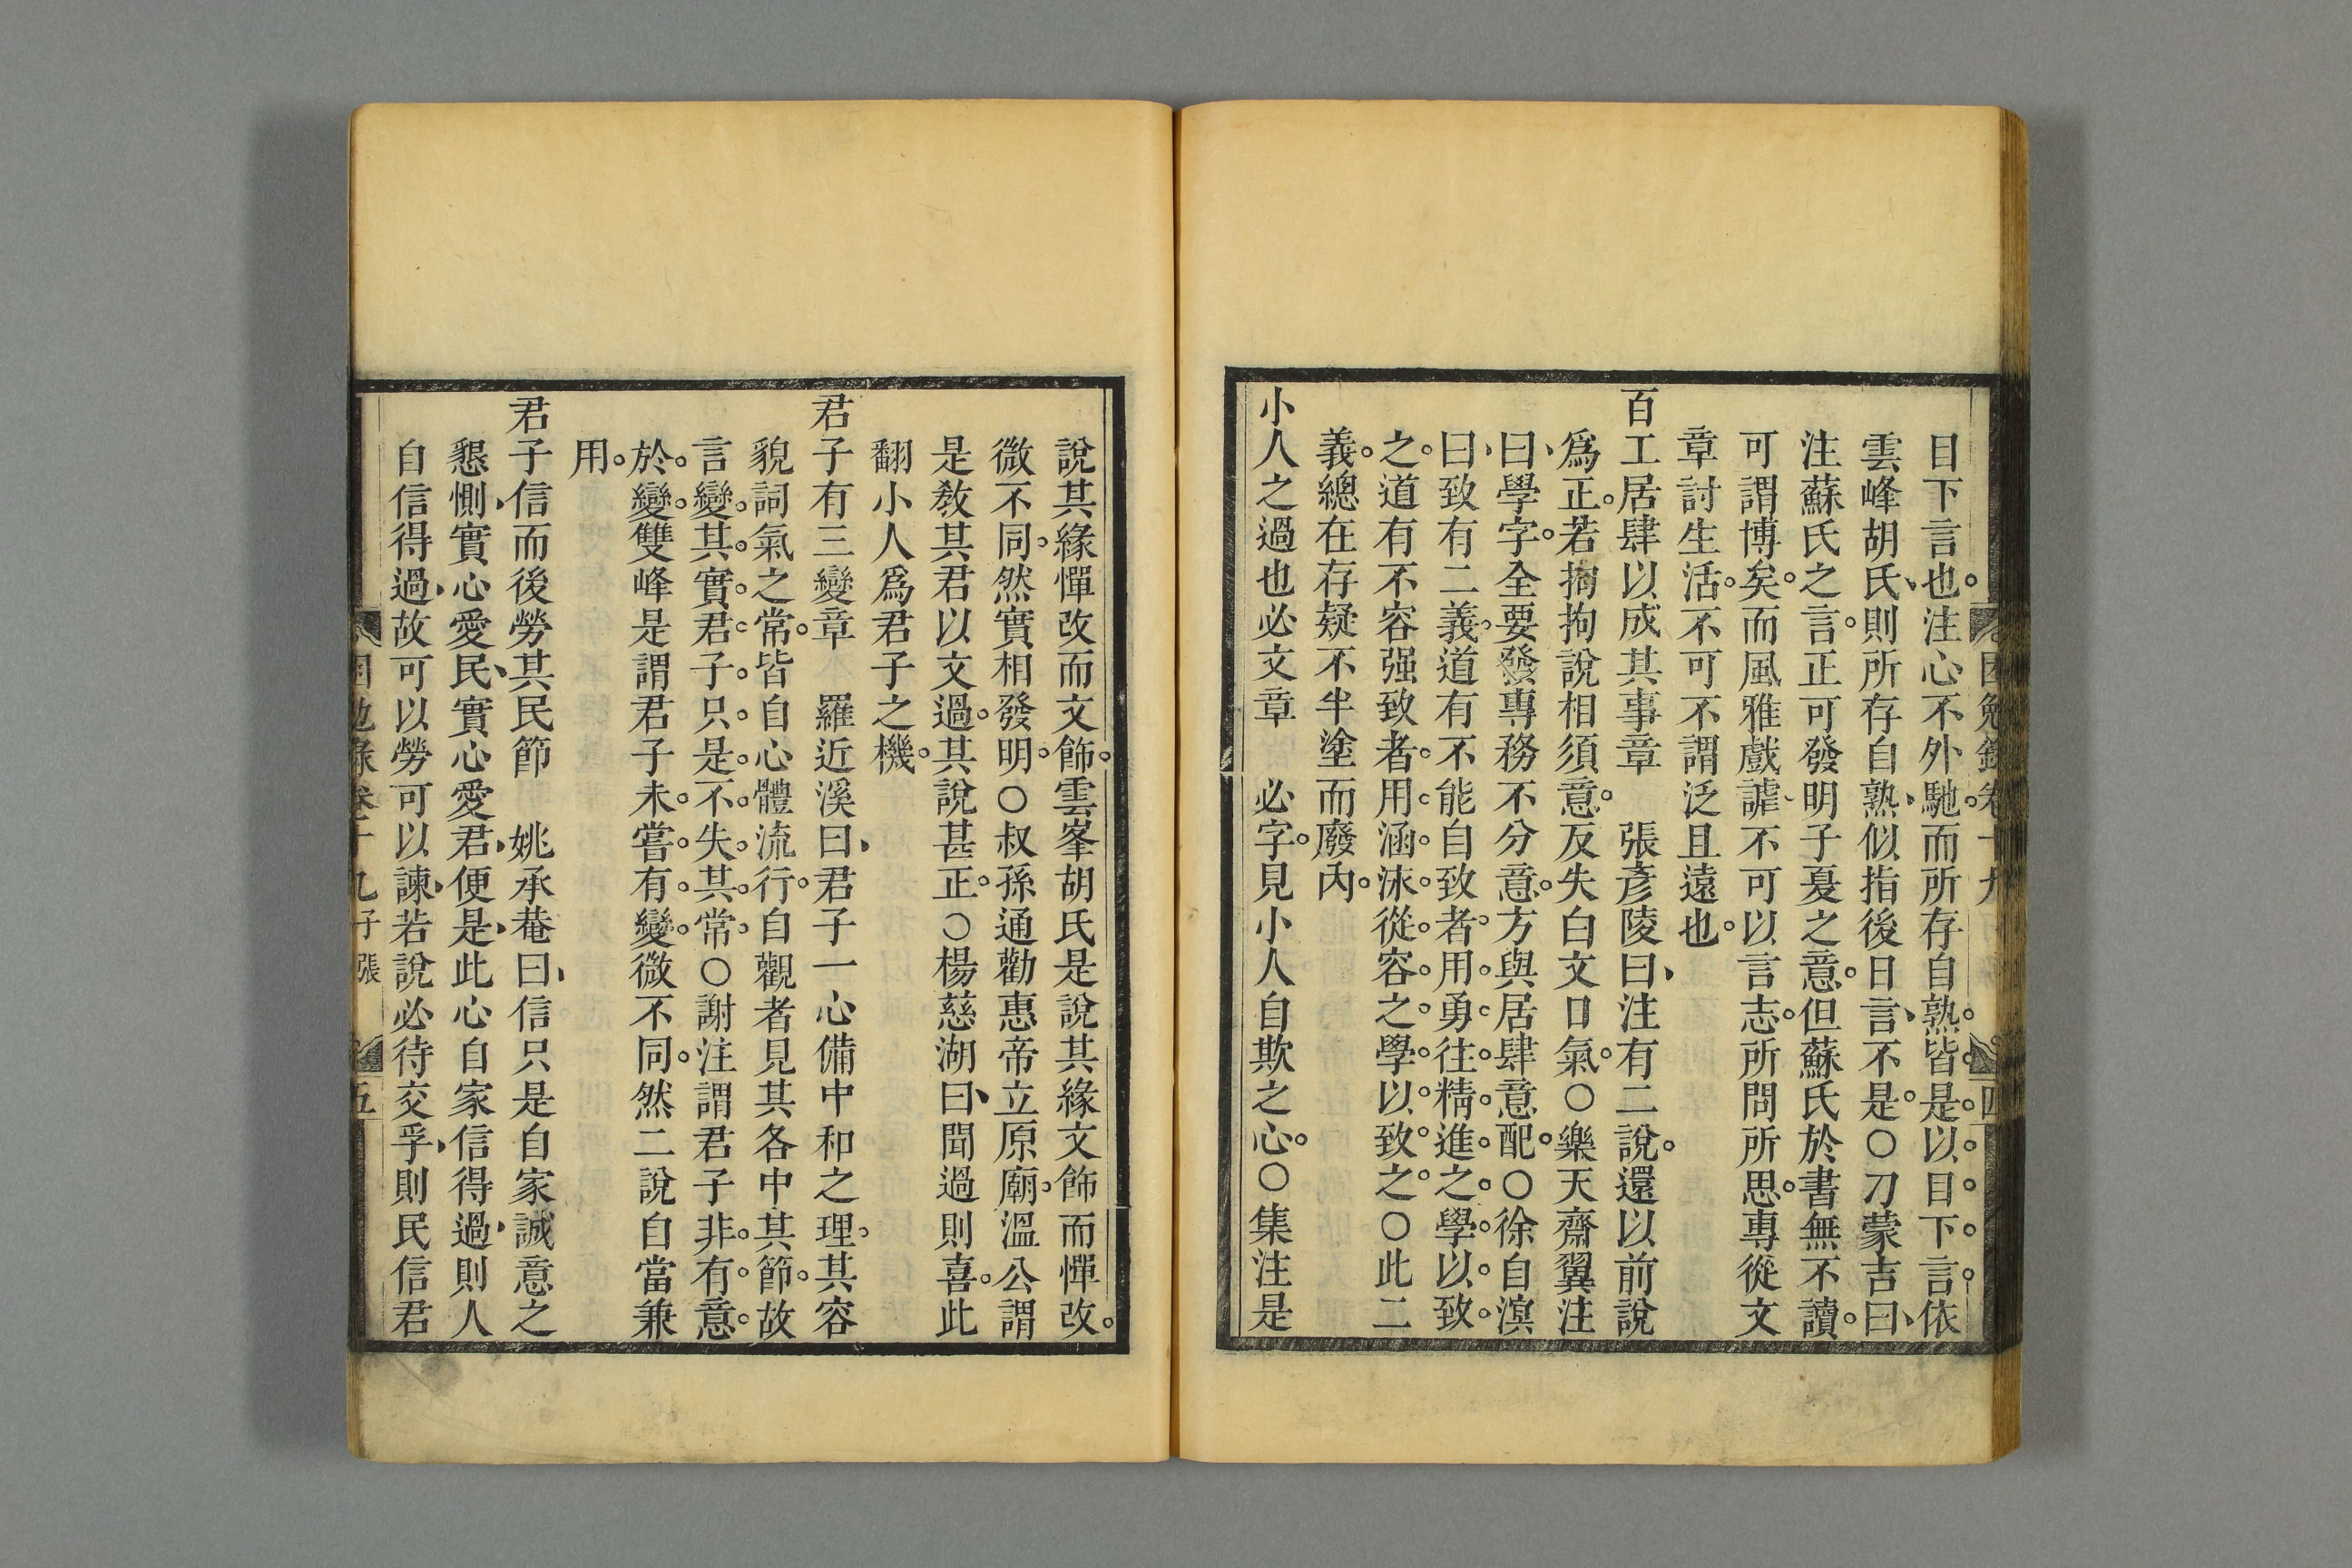 目下言也。注心不外馳。而所存自熟。皆是。以目下言。依
雲峰胡氏、則所存自熟、似指後日言、不是。○刁蒙吉曰、
注蘇氏之言。正可發明子夏之意。但蘇氏於書無不讀。
可謂博矣。而風雅戲謔、不可以言志。所問所思。專從文
章討生活。不可不謂泛且遠也。
百工居肆以成其事章　張彥陵曰、注有二說。還以前說
爲正。若摘拘說相須意。反失白文口氣。○樂天齋翼注
曰、學字。全要發專務不分意。方與居肆意配。○徐自溟
曰、致有二義。道有不能自致者。用勇往精進之學以致
之。道有不容强致者。用涵沫從容之學以致之。○此二
義。總在存疑不半塗而廢內。
小人之過也必文章　必字。見小人自欺之心。○集注是
困勉錄卷十九　四
說其緣憚改而文飾。雲峯胡氏是說其緣文飾而憚改。
微不同。然實相發明。○叔孫通勸惠帝立原廟。溫公謂
是敎其君以文過。其說甚正。○楊慈湖曰、聞過則喜。此
翻小人爲君子之機。
君子有三變章　羅近溪曰、君子一心備中和之理。其容
貌詞氣之常。皆自心體流行。自觀者見其各中其節。故
言變。其實君子只是不失其常。○謝注謂君子非有意
於變。雙峰是謂君子未嘗有變。微不同。然二說自當兼
用。
君子信而後勞其民節　姚承菴曰、信只是自家誠意之
懇惻、實心愛民、實心愛君、便是、此心自家信得過、則人
自信得過、故可以勞可以諫、若說必待交孚、則民信君
困勉錄卷十九　子張　五